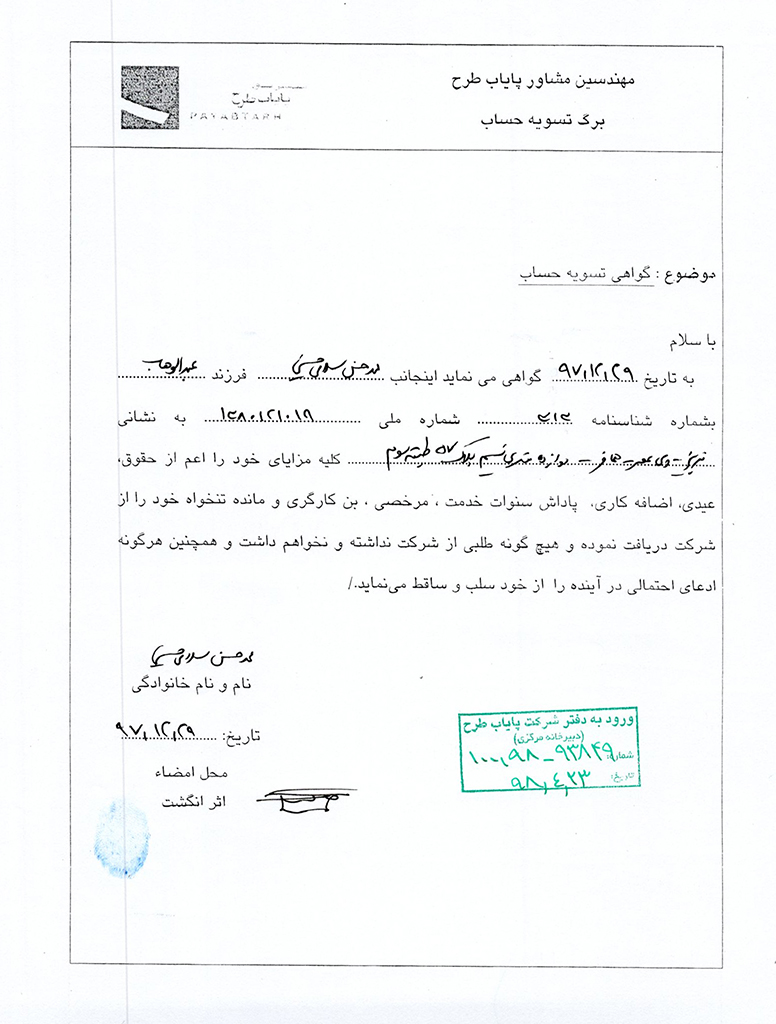 مهندسین مشاور پایاب طرح
برگ تسویه حساب
پایاب طرح
PAYABTARH
موضوع : گواهی تسویه حساب
با سلام
به تاریخ ۹۷,۱۲,۲۹ گواهی می نماید اینجانب محمدحسن فرزند عبدالوهاب
بشماره شناسنامه شماره ملی به نشانی
پلاک ۵۷ طبقه سوم کلیه مزایای خود را اعم از حقوق،
عیدی، اضافه کاری، پاداش سنوات خدمت ، مرخصی ، بن کارگری و مانده تنخواه خود را از
شرکت دریافت نموده و هیچ گونه طلبی از شرکت نداشته و نخواهم داشت و همچنین هرگونه
ادعای احتمالی در آینده را از خود سلب و ساقط می‌نماید./
محمدحسن
نام و نام خانوادگی
تاریخ: ۹۷,۱۲,۲۹
محل امضاء
اثر انگشت
ورود به دفتر شرکت پایاب طرح
(دبیرخانه مرکزی)
شماره: ۱۰۰,۹۸ – ۹۳۸۴۹
تاریخ: ۹۸,۴,۲۳